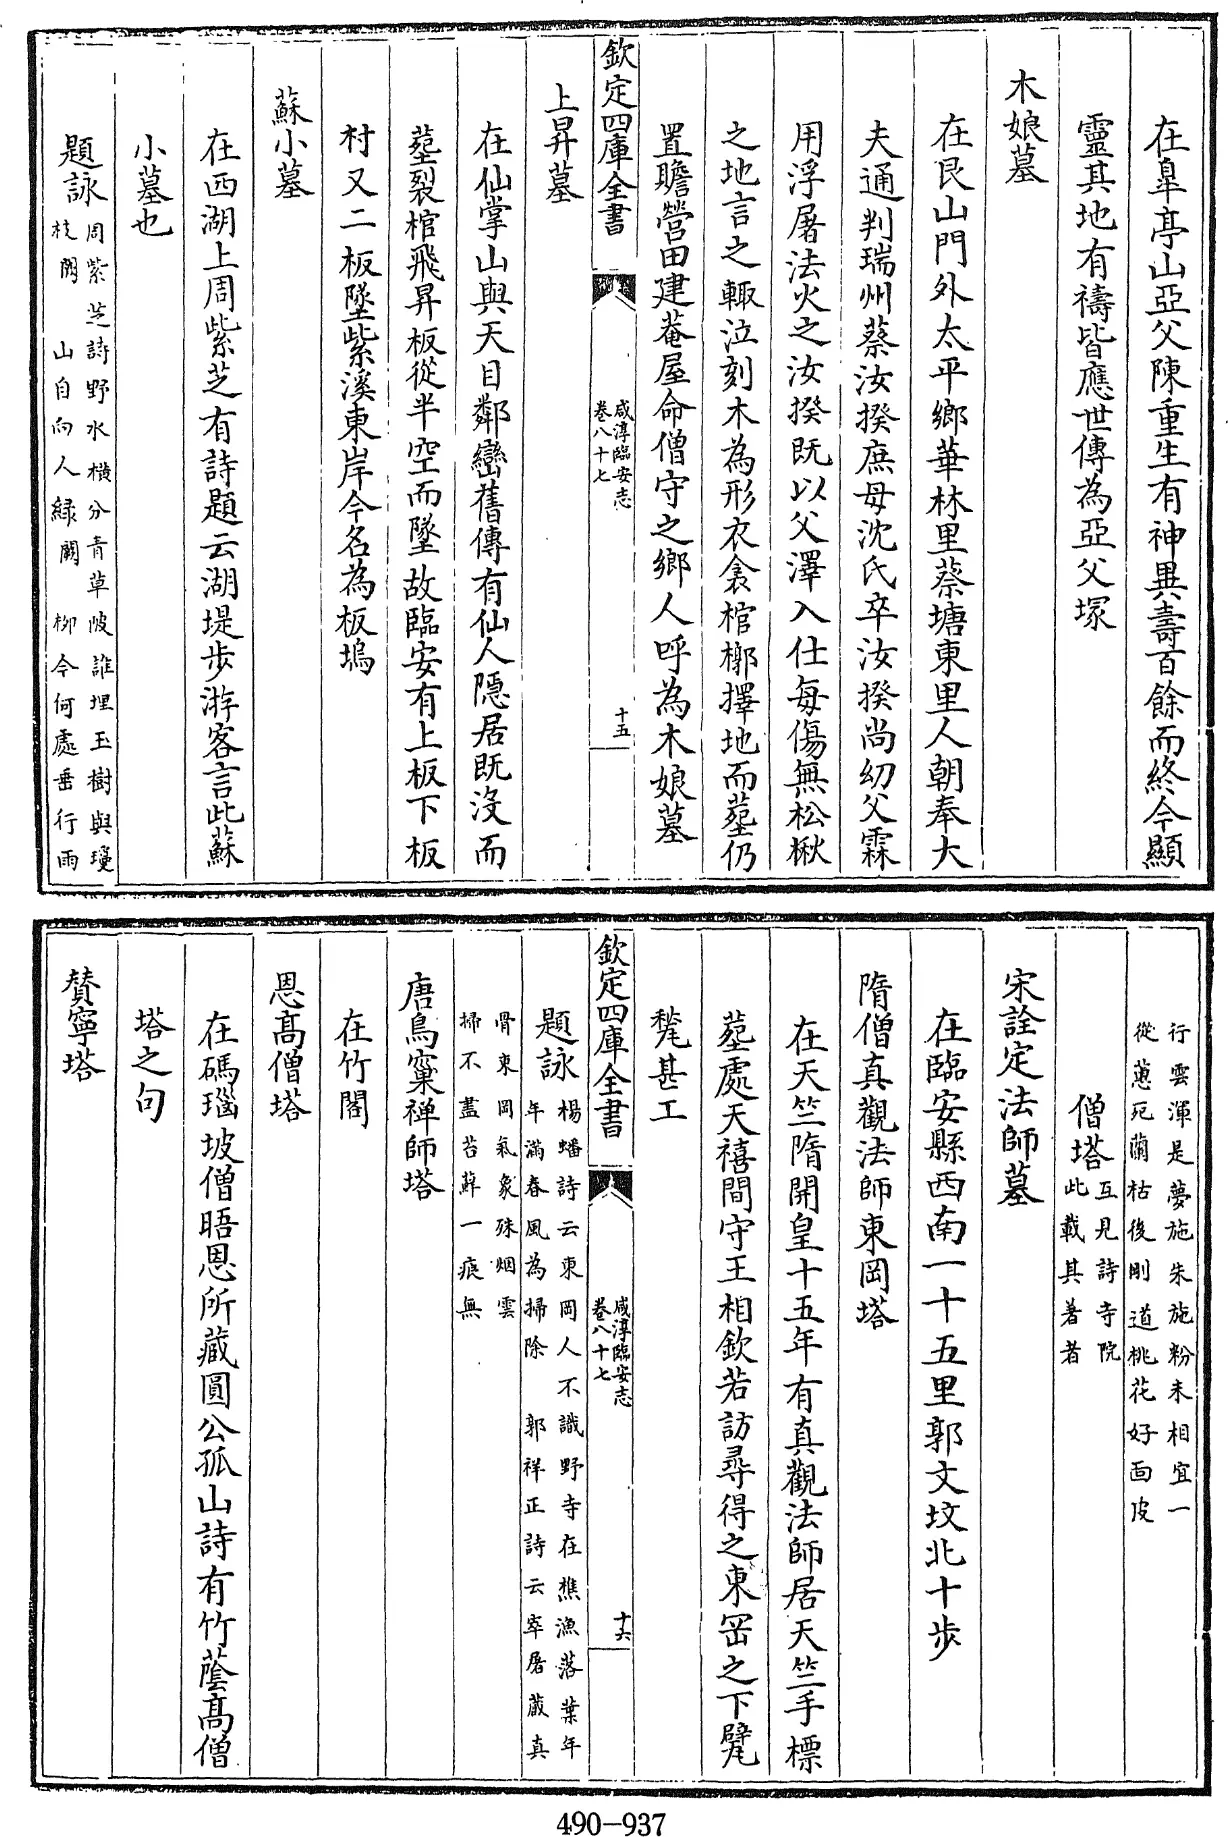 在臯亭山亞父陳重生有神異壽百餘而終今顯
靈其地有禱皆應世傳為亞父塚
木娘墓
在艮山門外太平鄉華林里蔡塘東里人朝奉大
夫通判瑞州蔡汝揆庶母沈氏卒汝揆尚幼父霖
用浮屠法火之汝揆既以父澤入仕每傷無松楸
之地言之輙泣刻木為形衣衾棺槨擇地而塟仍
置贍營田建菴屋命僧守之鄉人呼為木娘墓
欽定四庫全書
咸淳臨安志
卷八十七
十五
上昇墓
在仙掌山與天目鄰巒舊傳有仙人隱居既沒而
塟裂棺飛昇板從半空而墜故臨安有上板下板
村又二板墜紫溪東岸今名為板塢
蘇小墓
在西湖上周紫芝有詩題云湖堤步游客言此蘇
小墓也
題詠
周紫芝詩野水橫分青草陂誰埋玉樹與瓊
枝闕 山自向人緑闕 柳今何處垂行雨
行雲渾是夢施朱施粉未相宜一
從蕙死蘭枯後剛道桃花好面皮
僧塔
互見詩寺院
此載其著者
宋詮定法師墓
在臨安縣西南一十五里郭文坟北十步
隋僧真觀法師東岡塔
在天竺隋開皇十五年有真觀法師居天竺手標
塟處天禧間守王相欽若訪尋得之東岡之下甓
甃甚工
欽定四庫全書
咸淳臨安志
卷八十七
十六
題詠
楊蟠詩云東岡人不識野寺在樵漁落葉年
年滿春風為掃除 郭祥正詩云宰屠藏真
骨東岡氣象殊烟雲
掃不盡苔蘚一痕無
唐鳥窠禅師塔
在竹閣
恩髙僧塔
在碼瑙坡僧晤恩所藏圓公孤山詩有竹蔭髙僧
塔之句
賛寧塔
490-937